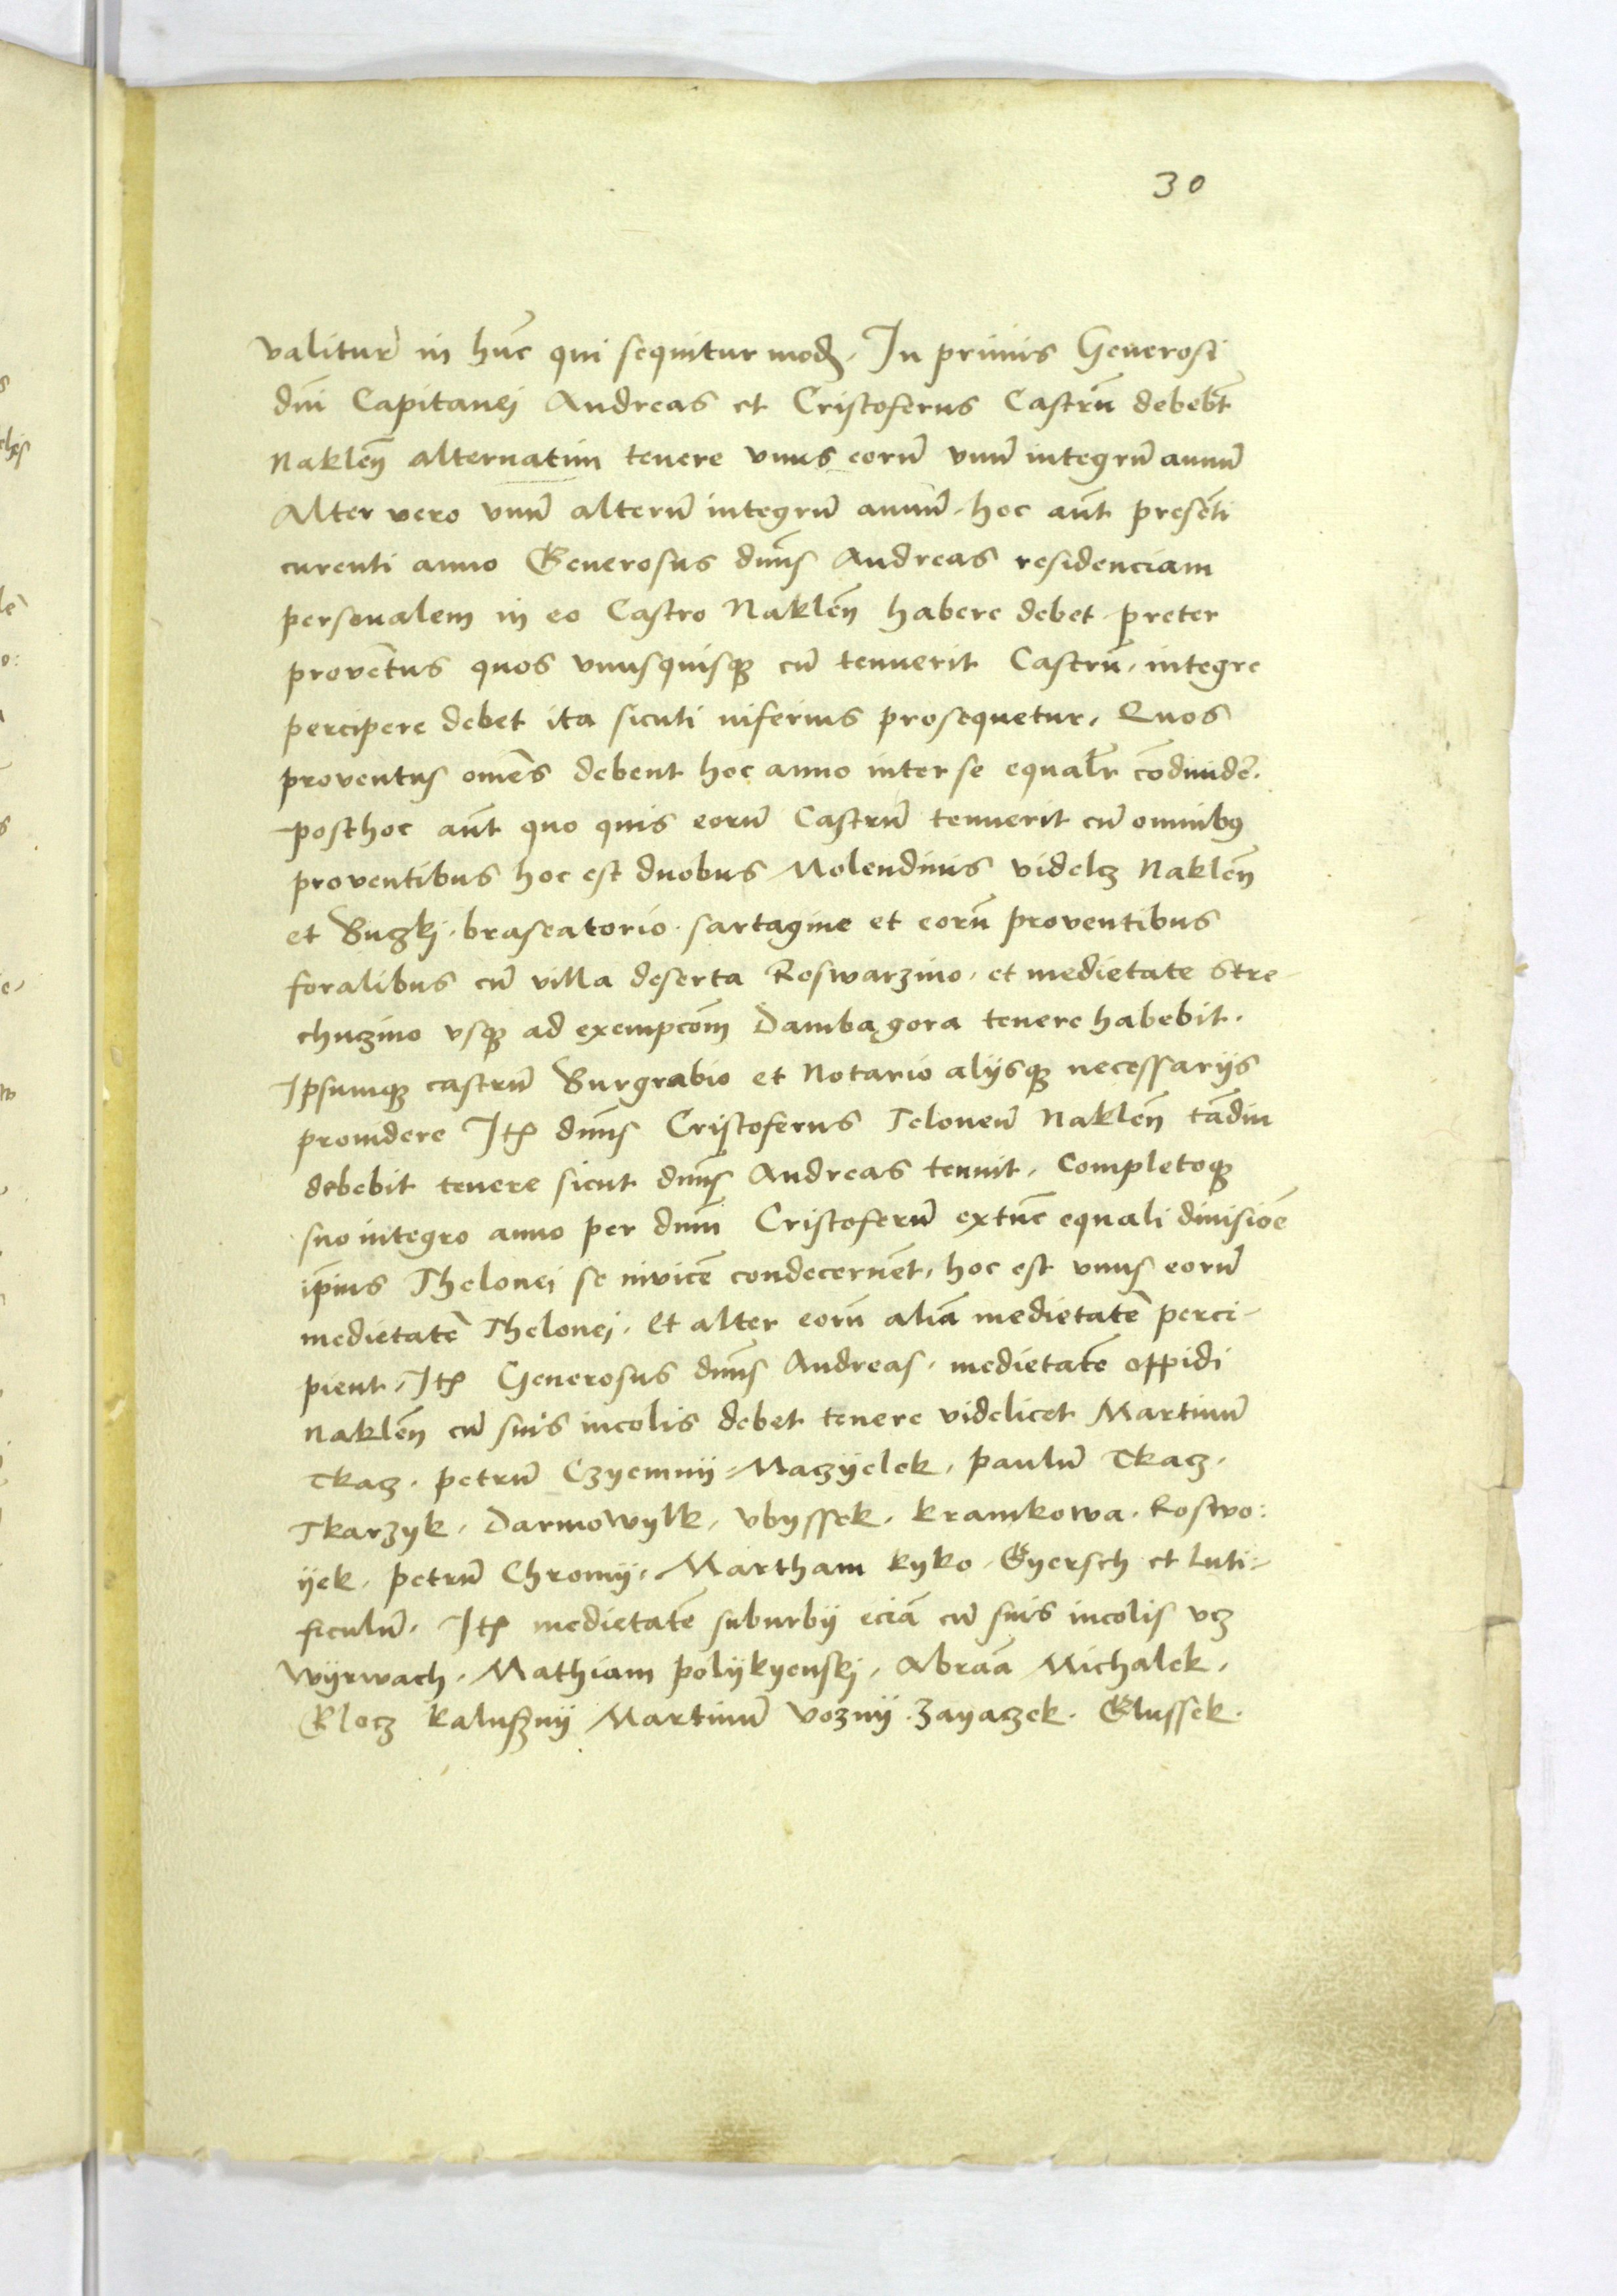 30
valitur̄ in hūc qui sequitur mod. In primis Generosi
dn̄i Capitanej Andreas et Cristoferus Castrū debebt̄
Naklen̄ alternatim tenere vnus eorū vnū integrū annū
Alter vero vnū alterū integrū annū. hoc aūt presēti
curenti anno Generosus dn̄s Andreas residenciam
personalem in eo Castro Naklen̄ habere debet preter
provētus quos vnusquisq cū tenuerit Castrū. integre
percipere debet ita sicuti inferius prosequetur. Quos
proventus om̄es debent hoc anno inter se equalr̄ cōdiuider̄.
posthoc aūt quo quis eorū Castrū tenuerit cū omnibꝫ
proventibus hoc est duobus Molendinis videlꝫ Naklen̄
et Buzkj. braseatorio. sartagine et eorū proventibus
foralibus cū villa deserta Roswarzino. et medietate Stre
chuzino vsq ad exempcōm Dambagora tenere habebit.
Ipsumq castrū Burgrabio et Notario alijsq necessarijs
prouidere Itꝫ dn̄s Cristoferus Teloneū Naklen̄ tādiu
debebit tenere sicut dn̄s Andreas tenuit. Completoq
suo integro anno per dnm̄ Cristoferū extūc equali diuisiōe
ip̄ius Thelonei se invicē condecernēt. hoc est vnus eorū
medietatē Thelonej. Et alter eorū aliā medietatē perci-
pient. Itꝫ Generosus dn̄s Andreas. medietatē oppidi
Naklen̄ cū suis incolis debet tenere videlicet Martinū
Tkacz. petrū Czyemny. Maczyelek. paulū Tkacz.
Tkarzyk. Darmowylk. Vbyssek. kramkowa. Roswo:
yek. petrū Chromy. Martham kyko. Gyersch et luti=
ficulū. Itꝫ medietatē suburbij eciā cū suis incolis vcz
Wyrwach. Mathiam polykyenskj. Abraā Michalek.
Klocz kalusny Martinū Vozny. Zayaczek. Glussek.